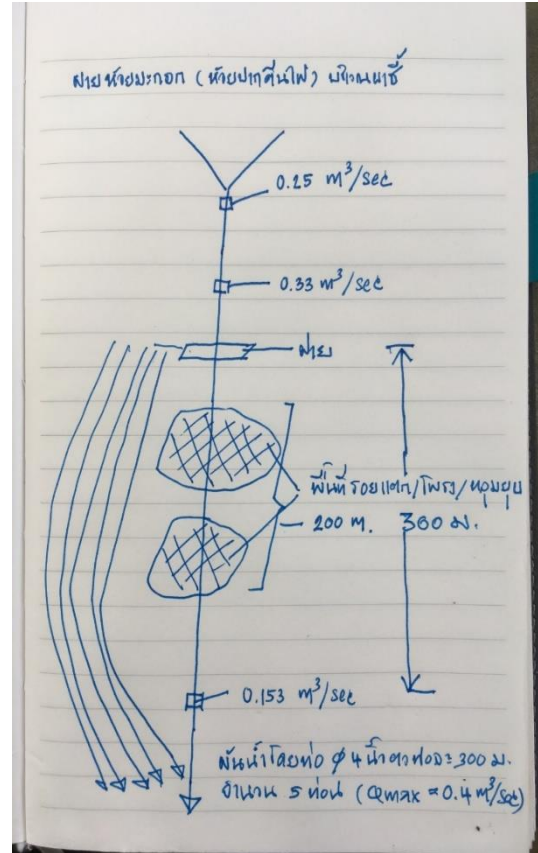 ฝายห้วยมะกอก (ห้วยปากคืนไฟ) บริเวณนาซี้
0.25 m³/sec
0.33 m³/sec
ฝาย
พื้นที่รอยแตก/โพรง/หลุมยุบ
200 m. 360 ม.
0.153 m³/sec
ผันน้ำโดยท่อ ϕ 4 นิ้ว ยาวท่อละ 300 ม.
จำนวน 5 ท่อน (Qmax = 0.4 m³/sec)